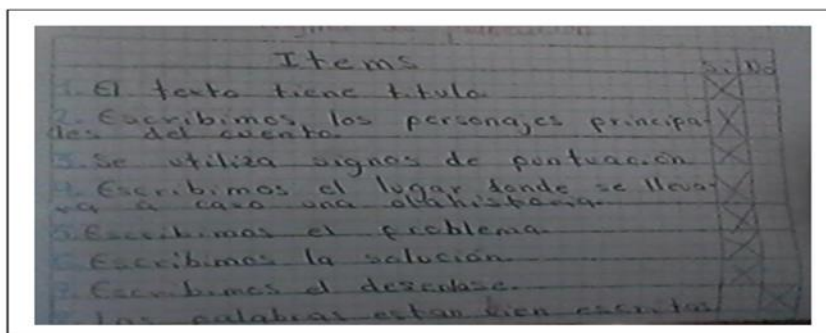 signos de puntuación
Items Si No
1. El texto tiene titulo.
2. Escribimos los personajes principa-
les del cuento.
3. Se utiliza signos de puntuación
4. Escribimos el lugar donde se lleva-
ra a caso una
5. Escribimos el problema.
6. Escribimos la solución.
7. Escribimos el desenlase.
8. Las palabras estan bien escritas